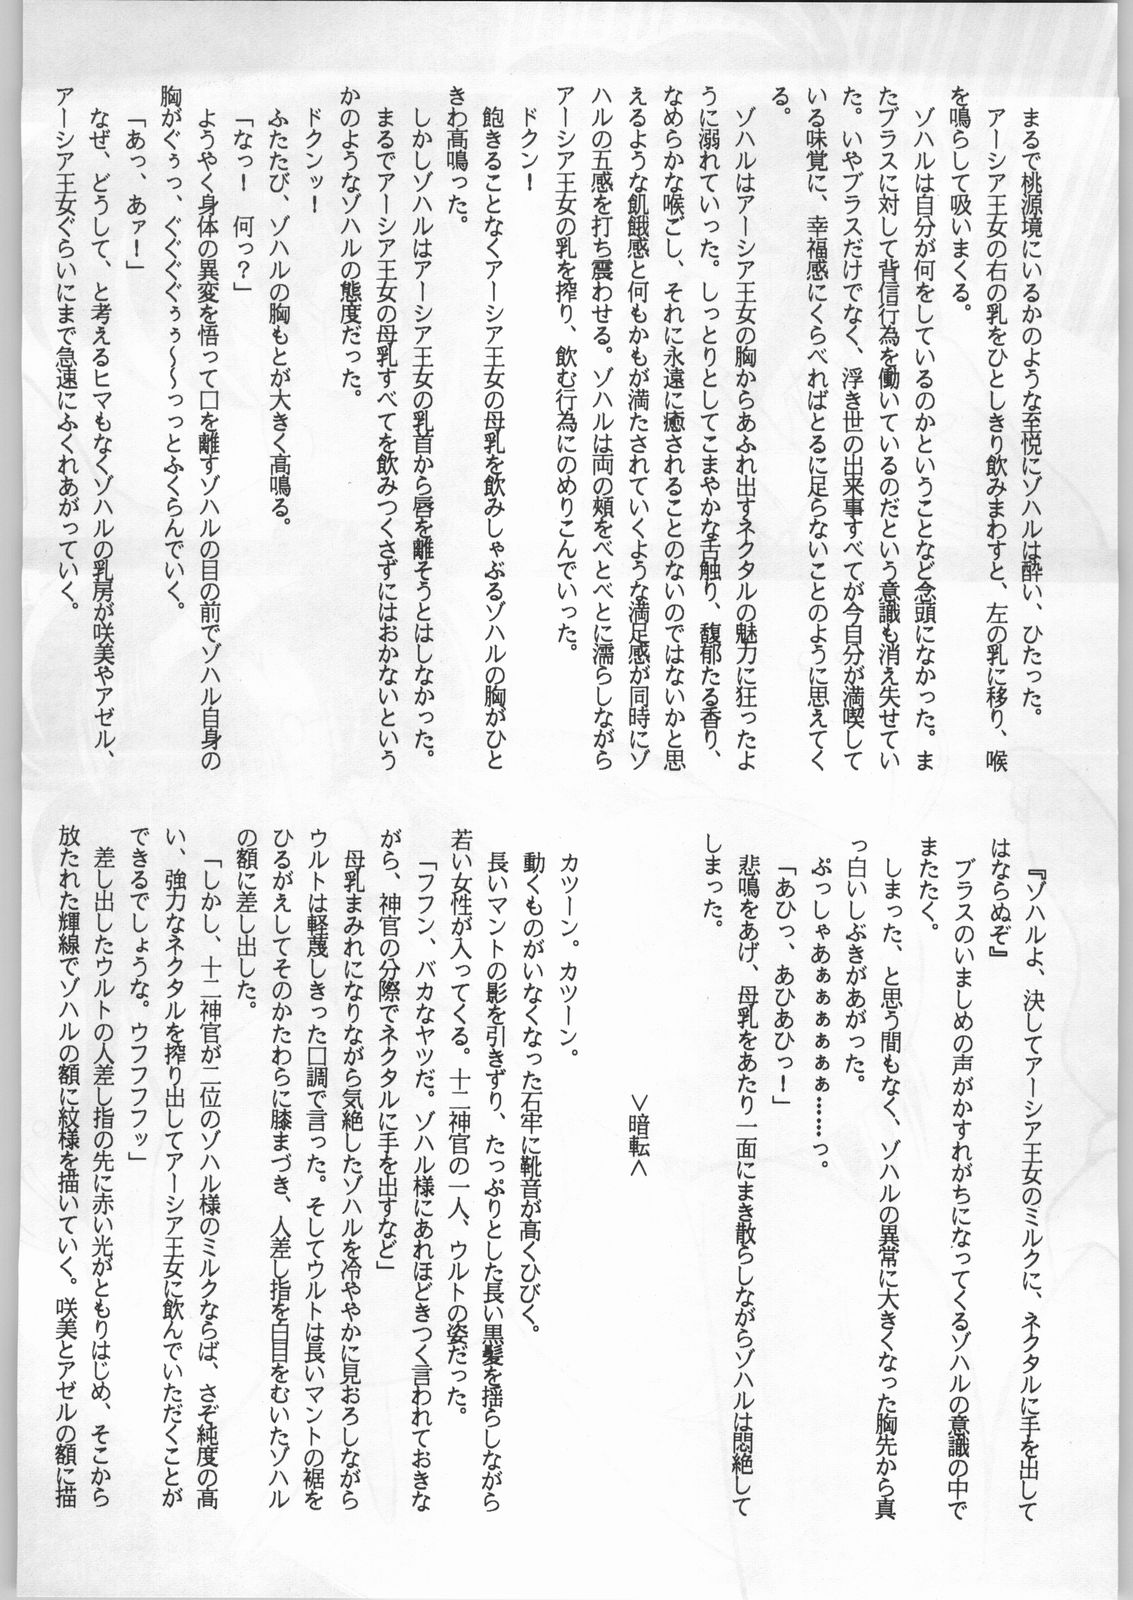 まるで桃源境にいるかのような至悦にゾハルは酔い、ひたった。
アーシア王女の右の乳をひとしきり飲みまわすと、左の乳に移り、喉
を鳴らして吸いまくる。
ゾハルは自分が何をしているのかということなど念頭になかった。ま
たブラスに対して背信行為を働いているのだという意識も消え失せてい
た。いやブラスだけでなく、浮き世の出来事すべてが今自分が満喫して
いる味覚に、幸福感にくらべればとるに足らないことのように思えてく
る。
ゾハルはアーシア王女の胸からあふれ出すネクタルの魅力に狂ったよ
うに溺れていった。しっとりとしてこまやかな舌触り、馥郁たる香り、
なめらかな喉ごし、それに永遠に癒されることのないのではないかと思
えるような飢餓感と何もかもが満たされていくような満足感が同時にゾ
ハルの五感を打ち震わせる。ゾハルは両の頬をべとべとに濡らしながら
アーシア王女の乳を搾り、飲む行為にのめりこんでいった。
ドクン！
飽きることなくアーシア王女の母乳を飲みしゃぶるゾハルの胸がひと
きわ高鳴った。
しかしゾハルはアーシア王女の乳首から唇を離そうとはしなかった。
まるでアーシア王女の母乳すべてを飲みつくさずにはおかないという
かのようなゾハルの態度だった。
ドクンッ！
ふたたび、ゾハルの胸もとが大きく高鳴る。
「なっ！　何っ？」
ようやく身体の異変を悟って口を離すゾハルの目の前でゾハル自身の
胸がぐぅっ、ぐぐぐぐぅぅ～～っっとふくらんでいく。
「あっ、あァ！」
なぜ、どうして、と考えるヒマもなくゾハルの乳房が咲美やアゼル、
アーシア王女ぐらいにまで急速にふくれあがっていく。
『ゾハルよ、決してアーシア王女のミルクに、ネクタルに手を出して
はならぬぞ』
ブラスのいましめの声がかすれがちになってくるゾハルの意識の中で
またたく。
しまった、と思う間もなく、ゾハルの異常に大きくなった胸先から真
っ白いしぶきがあがった。
ぷっしゃあぁぁぁぁぁぁ……っ。
「あひっ、あひあひっ！」
悲鳴をあげ、母乳をあたり一面にまき散らしながらゾハルは悶絶して
しまった。
＞暗転＜
カツーン。カツーン。
動くものがいなくなった石牢に靴音が高くひびく。
長いマントの影を引きずり、たっぷりとした長い黒髪を揺らしながら
若い女性が入ってくる。十二神官の一人、ウルトの姿だった。
「フフン、バカなヤツだ。ゾハル様にあれほどきつく言われておきな
がら、神官の分際でネクタルに手を出すなど」
母乳まみれになりながら気絶したゾハルを冷ややかに見おろしながら
ウルトは軽蔑しきった口調で言った。そしてウルトは長いマントの裾を
ひるがえしてそのかたわらに膝まづき、人差し指を白目をむいたゾハル
の額に差し出した。
「しかし、十二神官が二位のゾハル様のミルクならば、さぞ純度の高
い、強力なネクタルを搾り出してアーシア王女に飲んでいただくことが
できるでしょうな。ウフフフフッ」
差し出したウルトの人差し指の先に赤い光がともりはじめ、そこから
放たれた輝線でゾハルの額に紋様を描いていく。咲美とアゼルの額に描